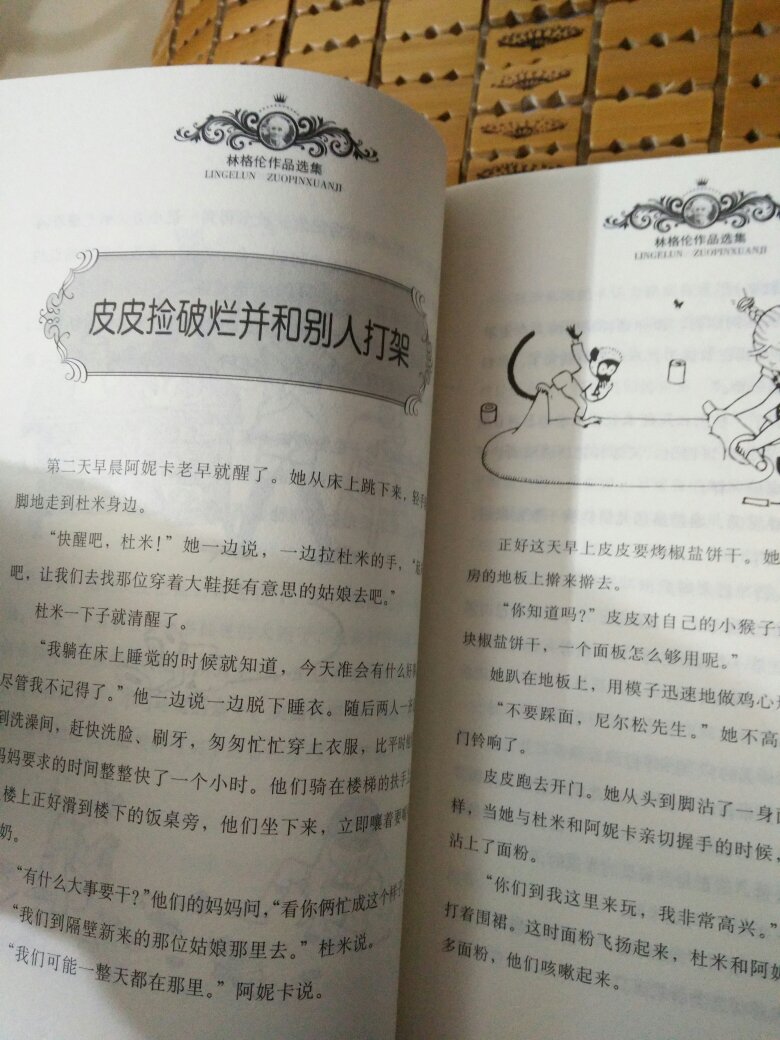 林格伦作品选集
LINGELUN ZUOPINXUANJI
皮皮捡破烂并和别人打架
第二天早晨阿妮卡老早就醒了。她从床上跳下来，轻手
脚地走到杜米身边。
“快醒吧，杜米！”她一边说，一边拉杜米的手，“
吧，让我们去找那位穿着大鞋挺有意思的姑娘去吧。”
杜米一下子就清醒了。
“我躺在床上睡觉的时候就知道，今天准会有什么好
尽管我不记得了。”他一边说一边脱下睡衣。随后两人一
到洗澡间，赶快洗脸、刷牙，匆匆忙忙穿上衣服，比平时
妈妈要求的时间整整快了一个小时。他们骑在楼梯的扶手
楼上正好滑到楼下的饭桌旁，他们坐下来，立即嚷着要
奶。
“有什么大事要干？”他们的妈妈问，“看你俩忙成这个样子
“我们到隔壁新来的那位姑娘那里去。”杜米说。
“我们可能一整天都在那里。”阿妮卡说。
林格伦作品选集
LINGELUN ZUOPINXUANJI
正好这天早上皮皮要烤椒盐饼干。她
房的地板上擀来擀去。
“你知道吗？”皮皮对自己的小猴子
块椒盐饼干，一个面板怎么够用呢。”
她趴在地板上，用模子迅速地做鸡心
“不要踩面，尼尔松先生。”她不高
门铃响了。
皮皮跑去开门。她从头到脚沾了一身面
样，当她与杜米和阿妮卡亲切握手的时候，
沾上了面粉。
“你们到我这里来玩，我非常高兴。”
打着围裙。这时面粉飞扬起来，杜米和阿妮
多面粉，他们咳嗽起来。